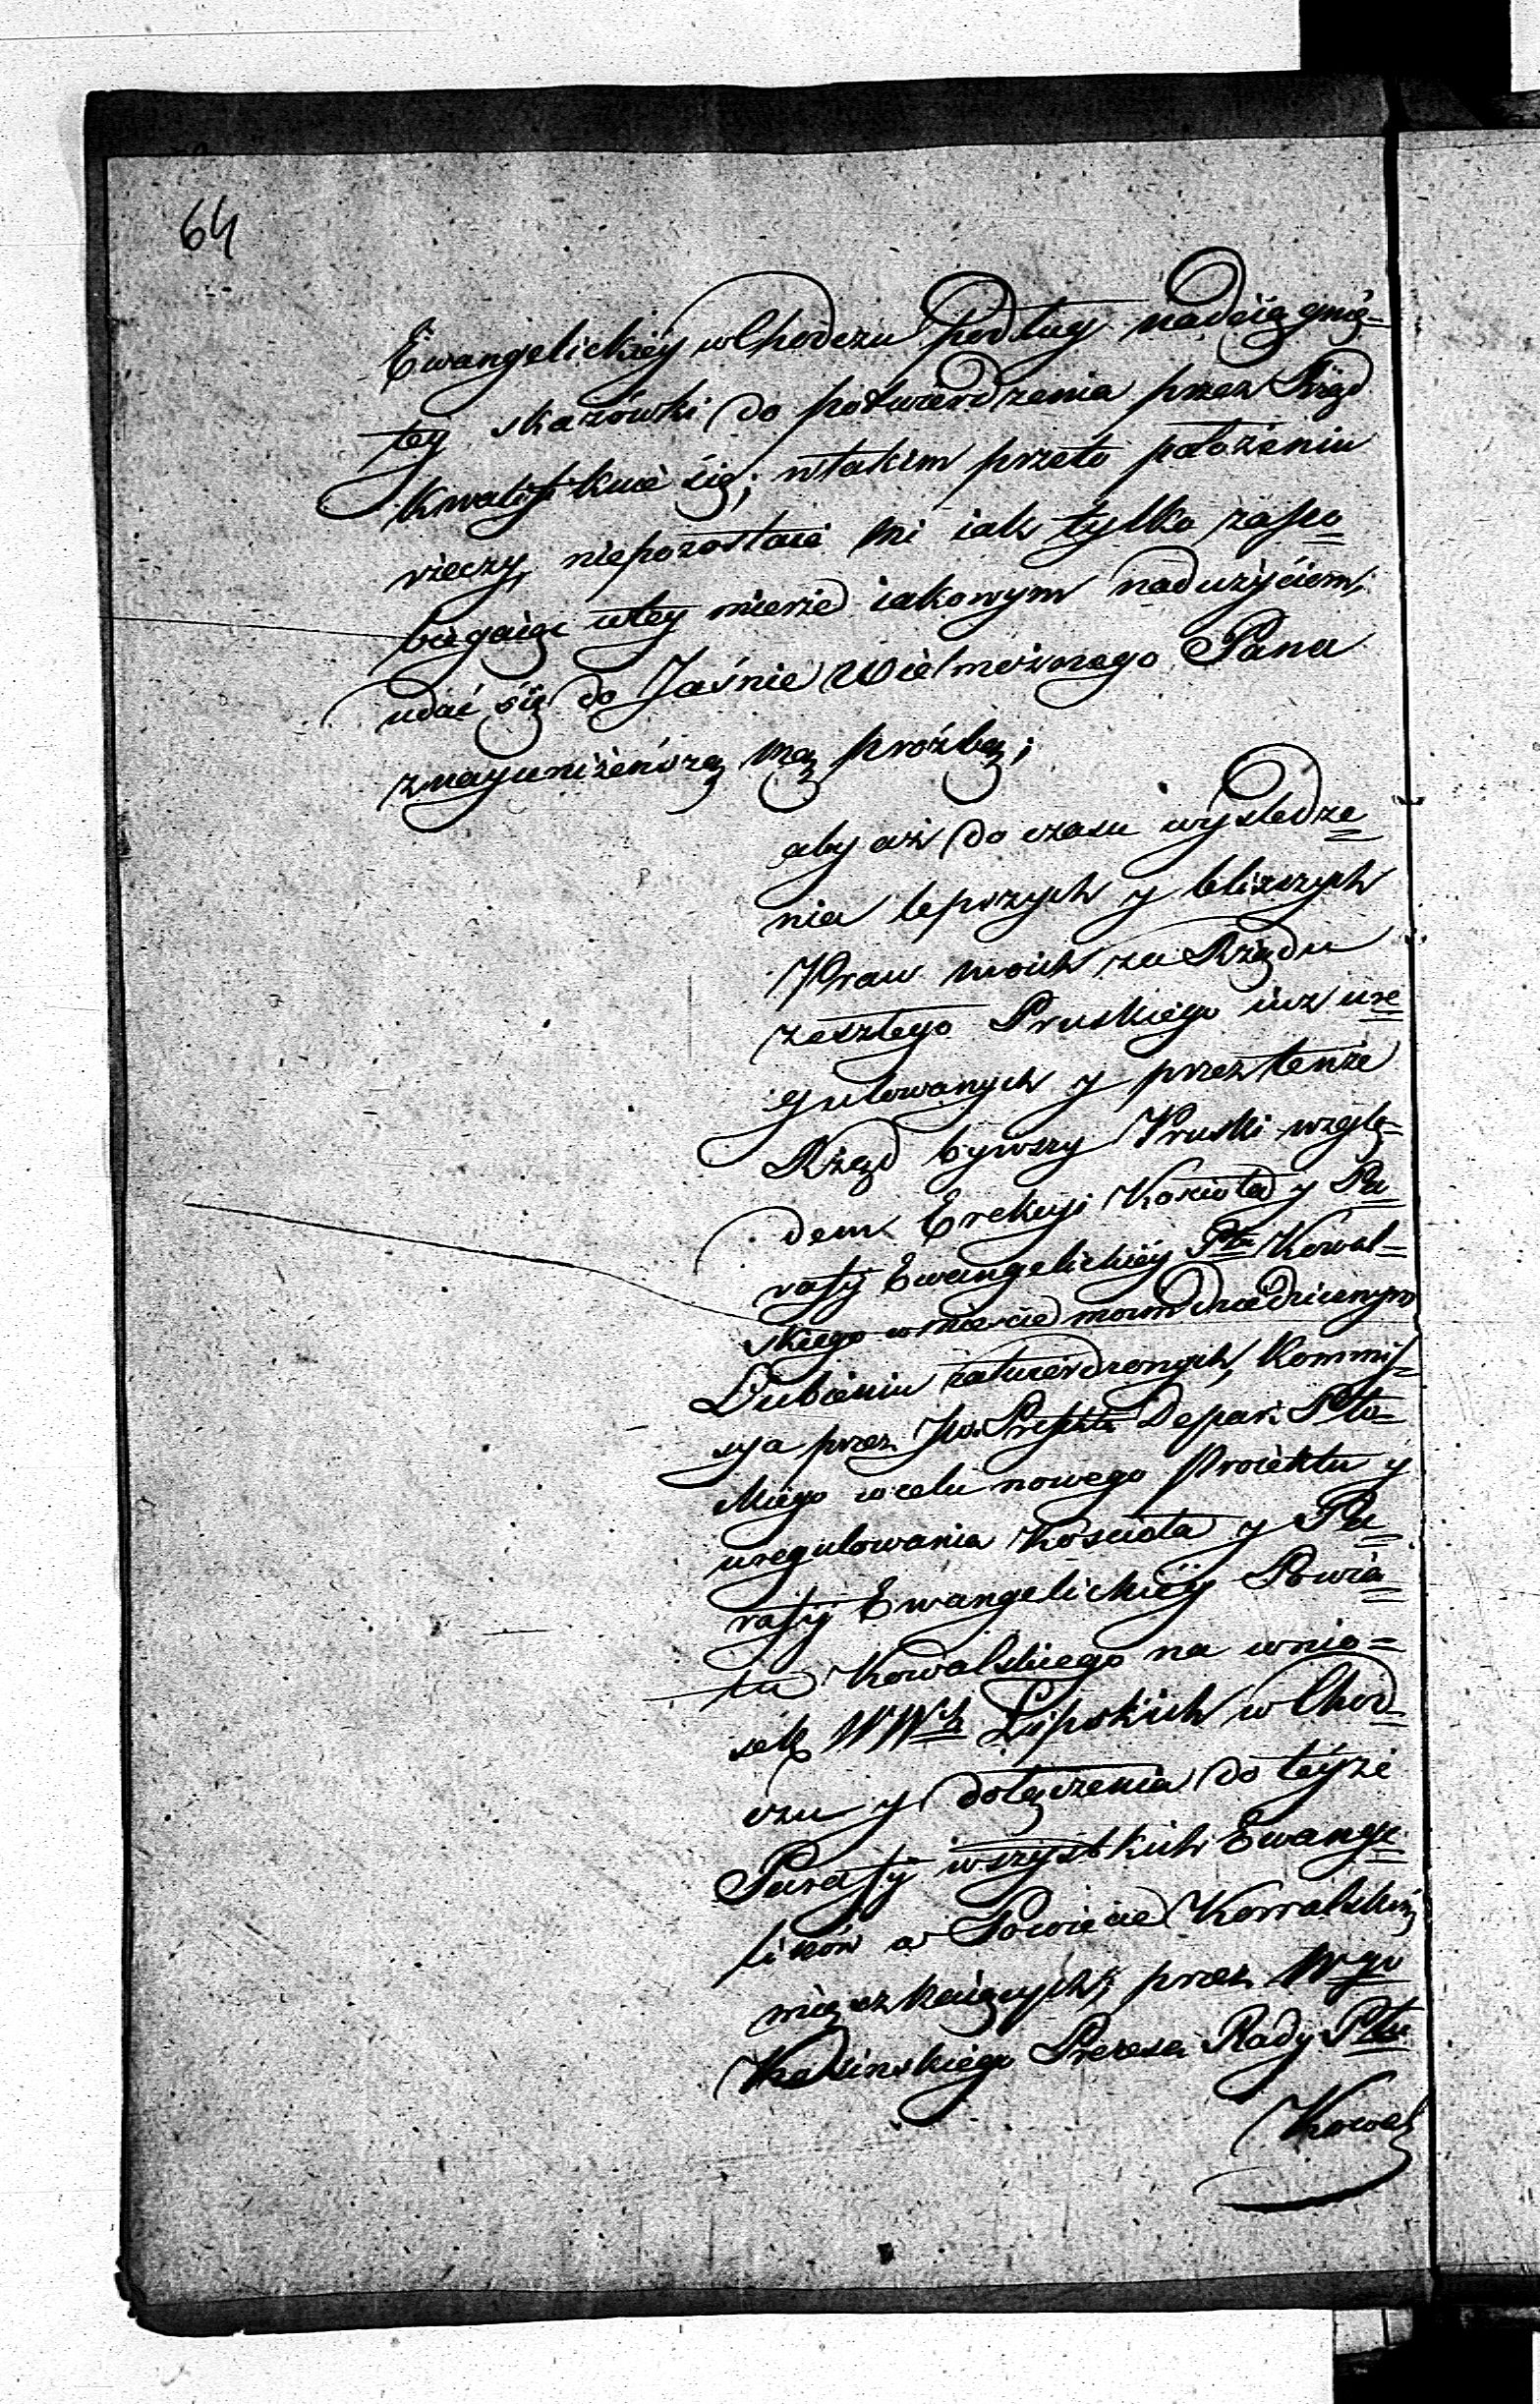 64
Ewangelickiéy w Chodczu podług nadciągnię-
tey skazówki do potwierdzenia przez Rząd
kwalifikuie się; w takim przeto położeniu
rzeczy, niepozostaie mi iak tylko zapo=
biegaiąc w tey mierze iakowym nadużyciem,
udać się do Jaśnie Wielmożnego Pana
z nayuniżeńszą mą proźbą;
aby aż do czasu wyśledze=
nia lepszych y bliższych
Praw moich za Rządu
zeszłego Pruskiego iuż ure=
gulowanych y przez tenże
Rząd bywszy Pruski wzglę=
dem Erekcyi Kościoła y Pa=
rafij Ewangelickiéy Ptu Kowal=
skiego w mieście moim dziedzicznym
Lubieniu zatwierdzonych, Kommis=
sya przez JW. Prefekta Depar: Pło-
ckiego w celu nowego Proiektu y
uregulowania Kościoła y Pa=
rafij Ewangelickiéy Powia=
tu Kowalskiego na wnio=
sek WWch Lipskich w Chod=
czu y dołączenia do téyże
Parafij wszystkich Ewange=
lików w Powiecie Kowalskim
mieszkaiących, przez Wgo
Prezesa Rady Ptu
Kowal